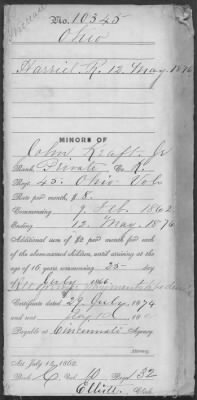 Increase
No. 10345
Ohio
Harriet R. 12 May. 1876
MINORS OF
John Kraft Jr
Rank, Private Co. K.
Regt. 45. Ohio Vol.
Rate per month, $8.
Commencing 9 Feb. 1862
Ending 12 May. 1876
Additional sum of $2 per month for each
of the above-named children, until arriving at the
age of 16 years commencing 25 day
July 1866
Certificate dated 29 July 1874
and sent
Payable at Cincinnati Agency.
Act July 14, 1862.
Book C Vol. 10 Page 132
Elliott, Clerk.